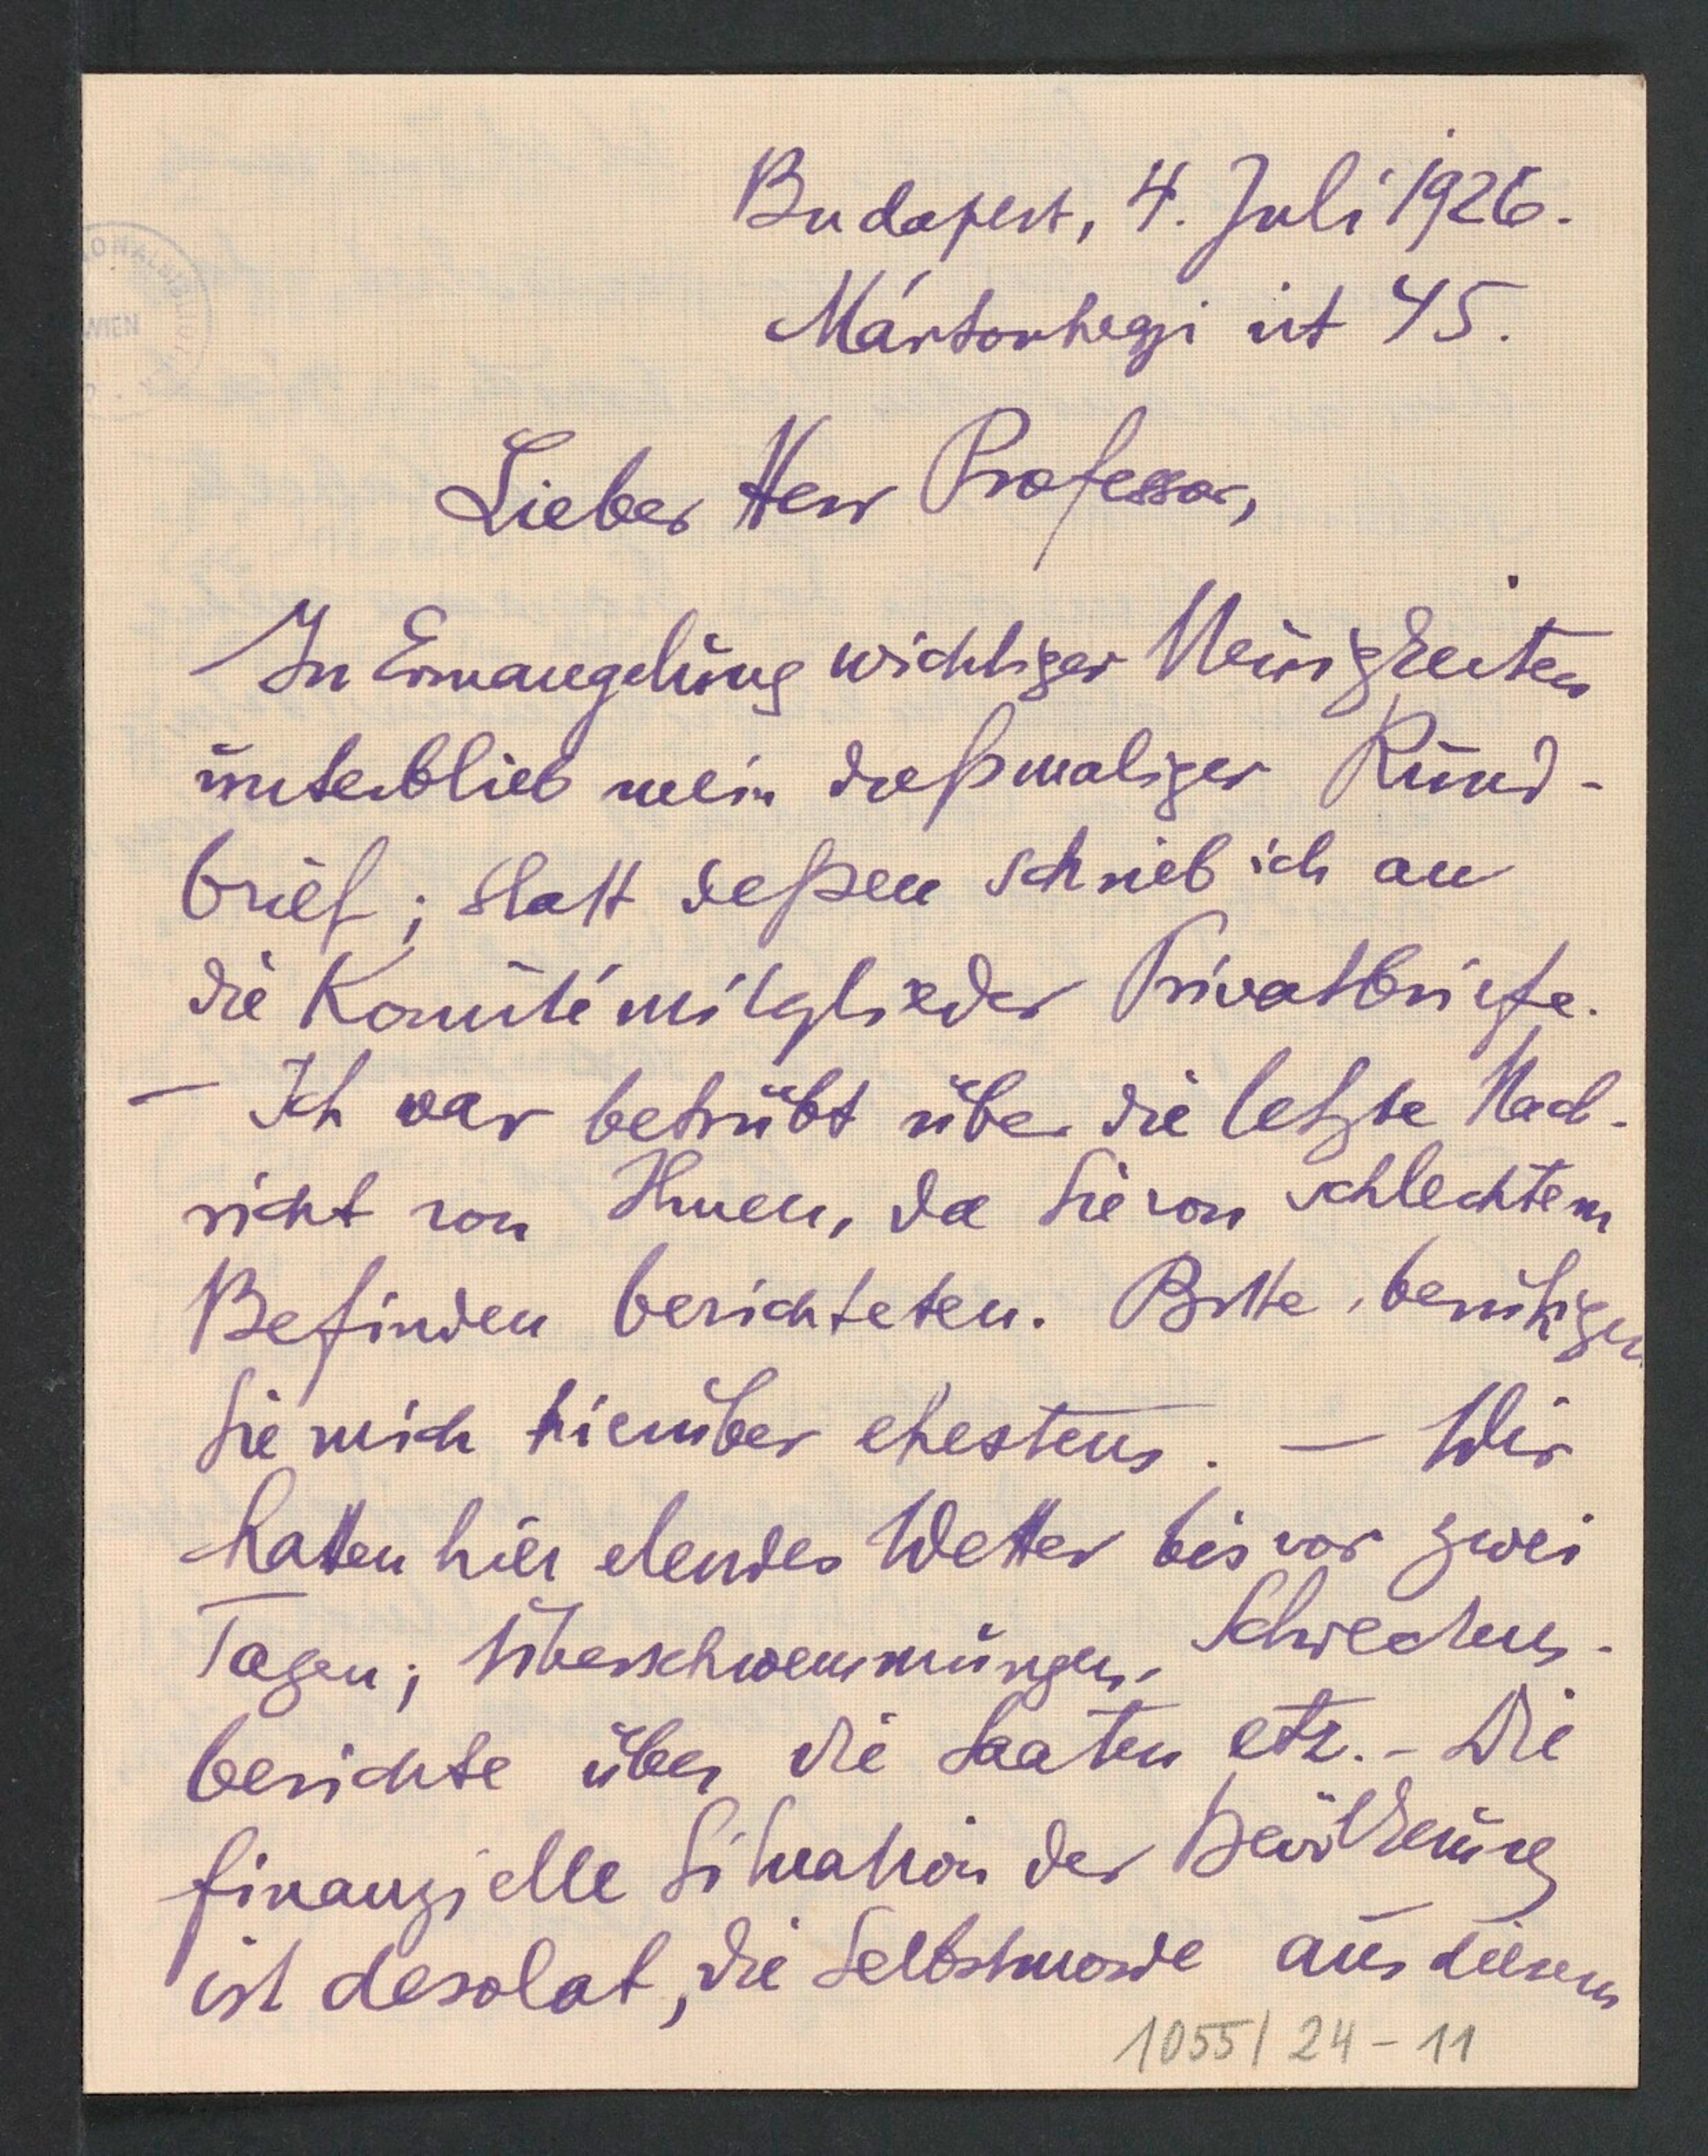 Budapest, 4. Juli 1926.
Mártonhegyi út 45.
Lieber Herr Professor,
In Ermangelung wichtiger Neuigkeiten
unterblieb mein dießmaliger Rund-
brief; statt deßen schrieb ich an
die Komitémitglieder Privatbriefe.
– Ich war betrübt über die letzte Nach-
richt von Ihnen, da Sie von schlechtem
Befinden berichteten. Bitte, beruhigen
Sie mich hierüber ehestens. – Wir
hatten hier elendes Wetter bis vor zwei
Tagen; Überschwemmungen, Schreckens-
berichte über die Saaten etz. – Die
finanzielle Situation der Bevölkerung
ist desolat, die Selbstmorde aus diesem
1055/24-11
WIEN